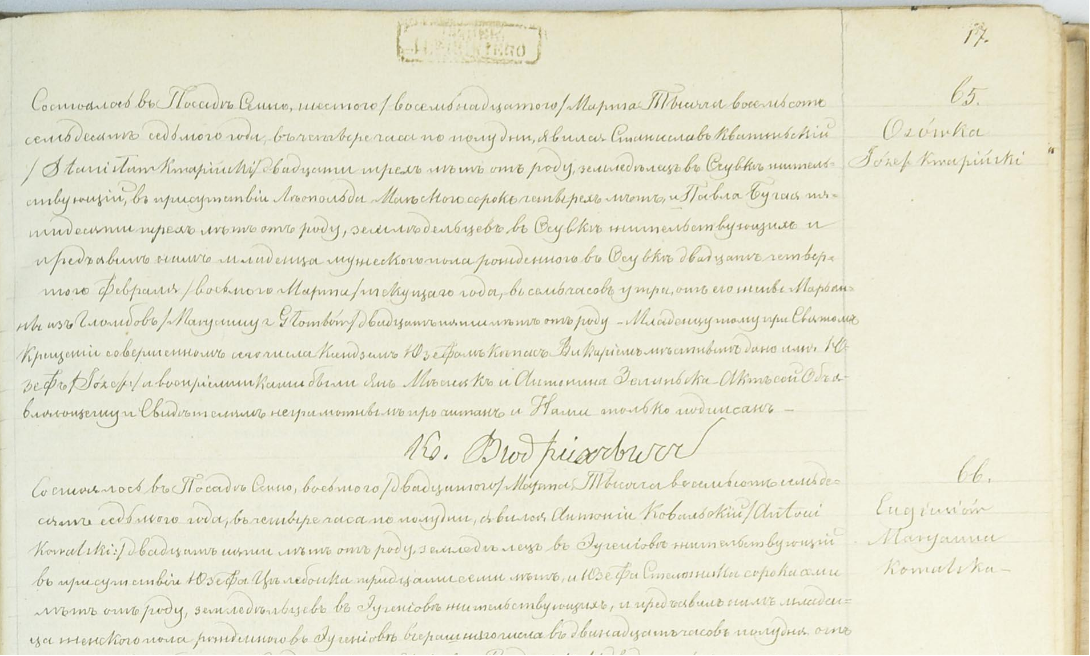 17.
65.
Озówka
Józef Kwapiński
Состоялось въ Посадѣ Сенно, шестого /восемьнадцатого/ Марта Тысяча восемьсотъ
семьдесятъ седьмого года, въ четвере часа по полудни, явился Станиславъ Квапиньскій
/Stanisław Kwapiński/ двадцати трехъ лѣтъ отъ роду, земледѣлецъ въ Осувкѣ житель-
ствующій, въ присутствіи Леопольда сорокъ четверехъ лѣтъ, и Павла Бугая пя-
тидесяти трехъ лѣтъ отъ роду, земледѣльцевъ въ Осувкѣ жительствующихъ и
предъявилъ намъ младенца мужескаго пола рожденного въ Осувкѣ двадцать четвер-
того Февраля /восьмого Марта/ текущаго года, въ семь часовъ утра, отъ его жены Марьян-
ны изъ Гломбовъ /Maryanny z Głombów/ двадцать пяти лѣтъ отъ роду – Младенцу тому при Святомъ
Крещеніи совершенномъ сего числа Ксендзомъ Юзефомъ Викаріемъ мѣстнымъ дано имя Ю-
зефъ /Józef/ а воспріемниками были Янъ и Антонина Зелиньска – Актъ сей Объя-
вляющему и Свидѣтелямъ неграмотнымъ прочитанъ и Нами только подписанъ –
Кс.
66.
Eugieniów
Maryanna
Kowalska –
Состоялось въ Посадѣ Сенно, восьмого /двадцатого/ Марта Тысяча восемьсотъ семьде-
сятъ седьмого года, въ четвере часа по полудни, явился Антоніи Ковальскій /Antoni
Kowalski/ двадцать пяти лѣтъ отъ роду, земледѣлецъ въ Эугеніовѣ жительствующій
въ присутствіи Юзефа тридцати семи лѣтъ, и Юзефа сорока семи
лѣтъ отъ роду, земледѣльцевъ въ Эугеніовѣ жительствующихъ, и предъявилъ намъ младен-
ца женского пола рожденного въ Эугеніовѣ вчерашняго числа въ двенадцать часовъ полудня отъ